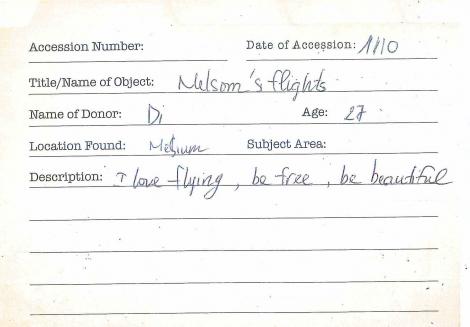 Accession Number: Date of Accession: 1/10
Title/Name of Object: Melsom's flights
Name of Donor: Di Age: 27
Location Found: Subject Area:
Description: I love flying, be free, be beautiful